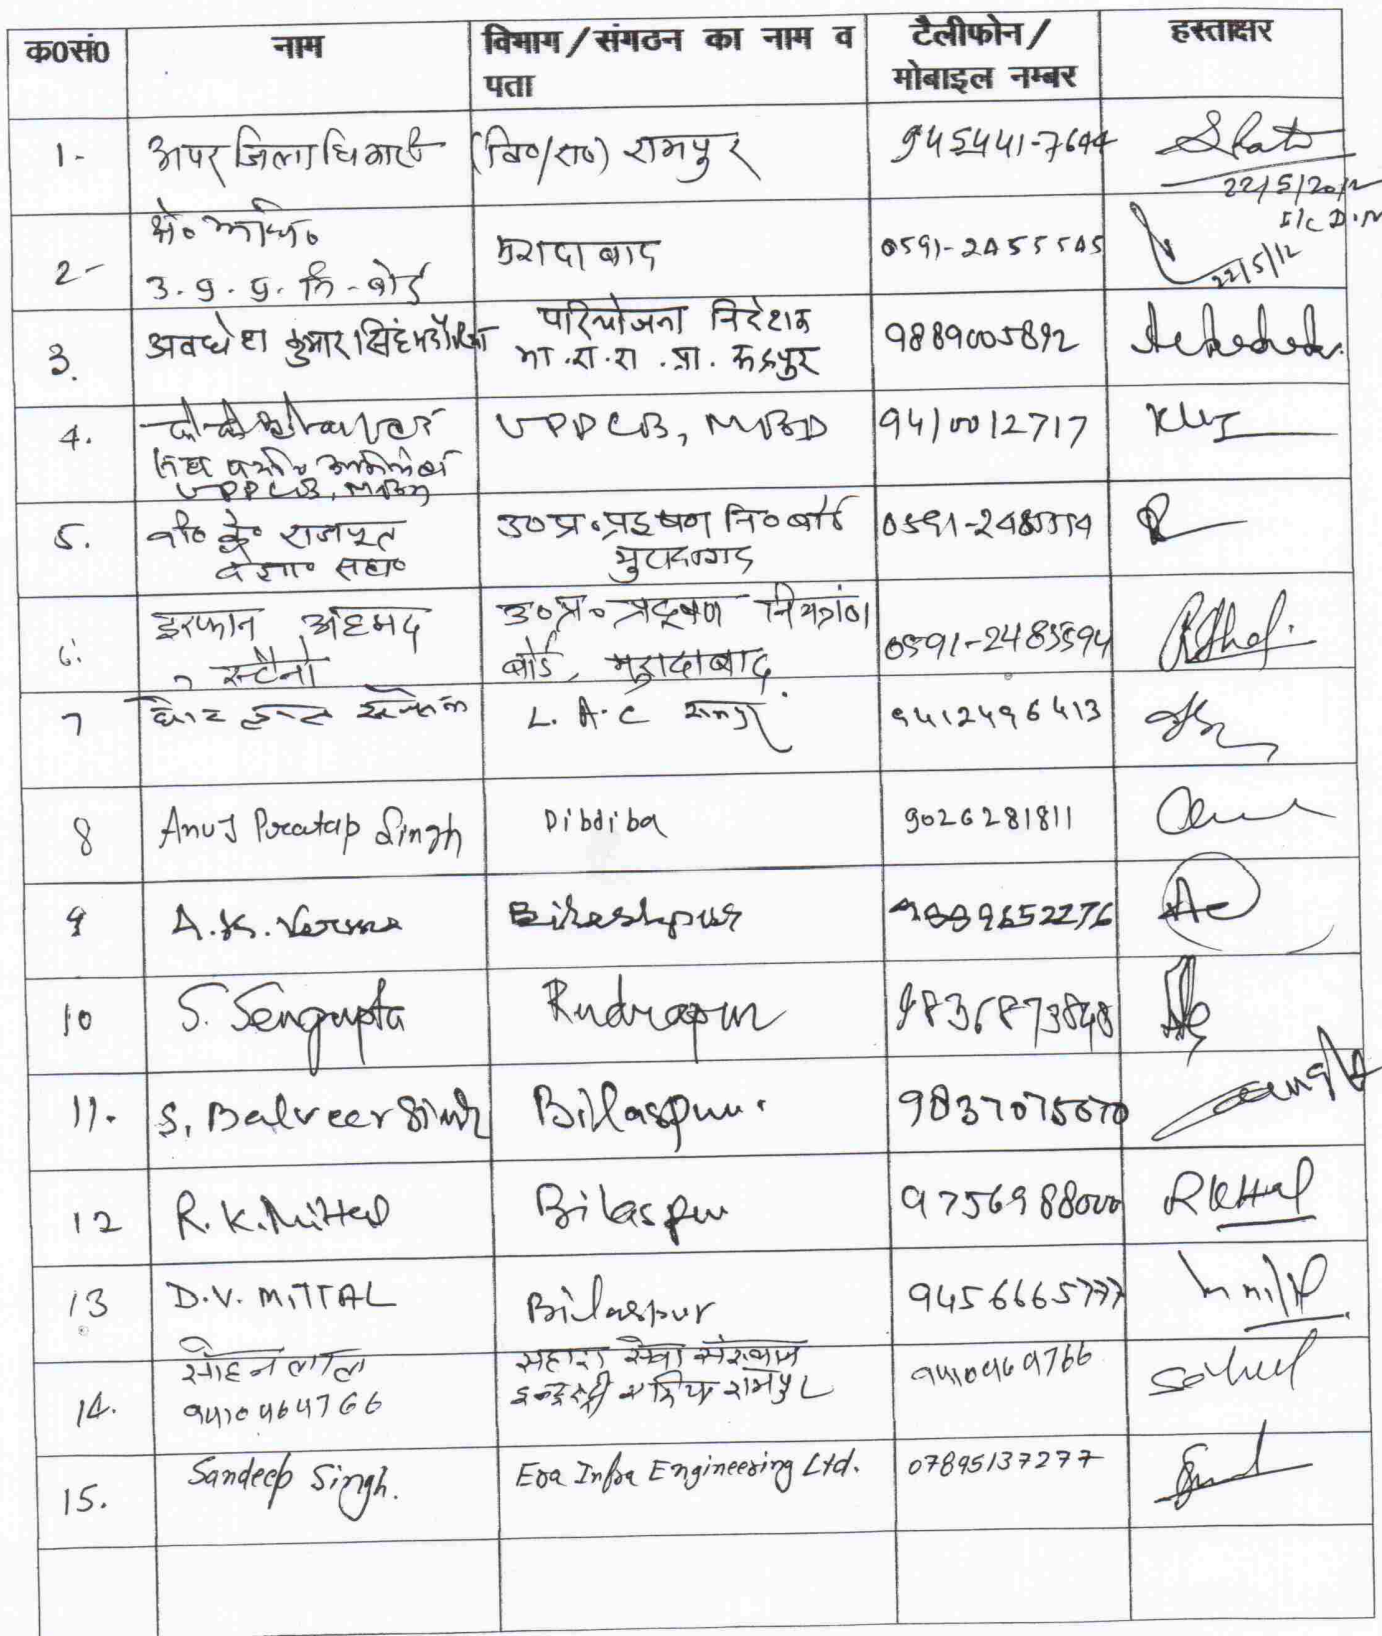 क0सं0 नाम विभाग/संगठन का नाम व पता टैलीफोन/ मोबाइल नम्बर हस्ताक्षर
1- अपर जिलाधिकारी (वि०/रा०) रामपुर 945441-7644
22/5/2012
I/C D.M
2- क्षे० अधि०
उ.प्र.प्र.नि-बोर्ड मुरादाबाद 0591-2455545
22/5/12
3. अवधेश कुमार सिंह परियोजना निदेशक
भा.रा.रा.प्रा. रूद्रपुर 9889005892
4. UPPCB, MBD 9410012717
UPPCB, MBD
5. वी० के० राजपूत उ०प्र०प्रदूषण नि०बोर्ड 0591-2485594
सहा० मुरादाबाद
6. इरफान अहमद उ०प्र० प्रदूषण नियंत्रण
स्टैनो बोर्ड, मुरादाबाद 0591-2485594
7 L.A.C 9412496413
8 Anuj Pratap Singh Dibdiba 9026281811
9 A.K. Verma Bilashpur 9889652276
10 S. Sengupta Rudrapur 9836873848
11. S. Balveer Singh Billaspur. 9837075070
12 R.K. Mittal Bilaspur 9756988000
13 D.V. MITTAL Bilaspur 9456665777
14. सोहन लाल सहारा सेवा संस्थान 9410464766
9410464766 रामपुर
15. Sandeep Singh. Era Infra Engineering Ltd. 07895137277